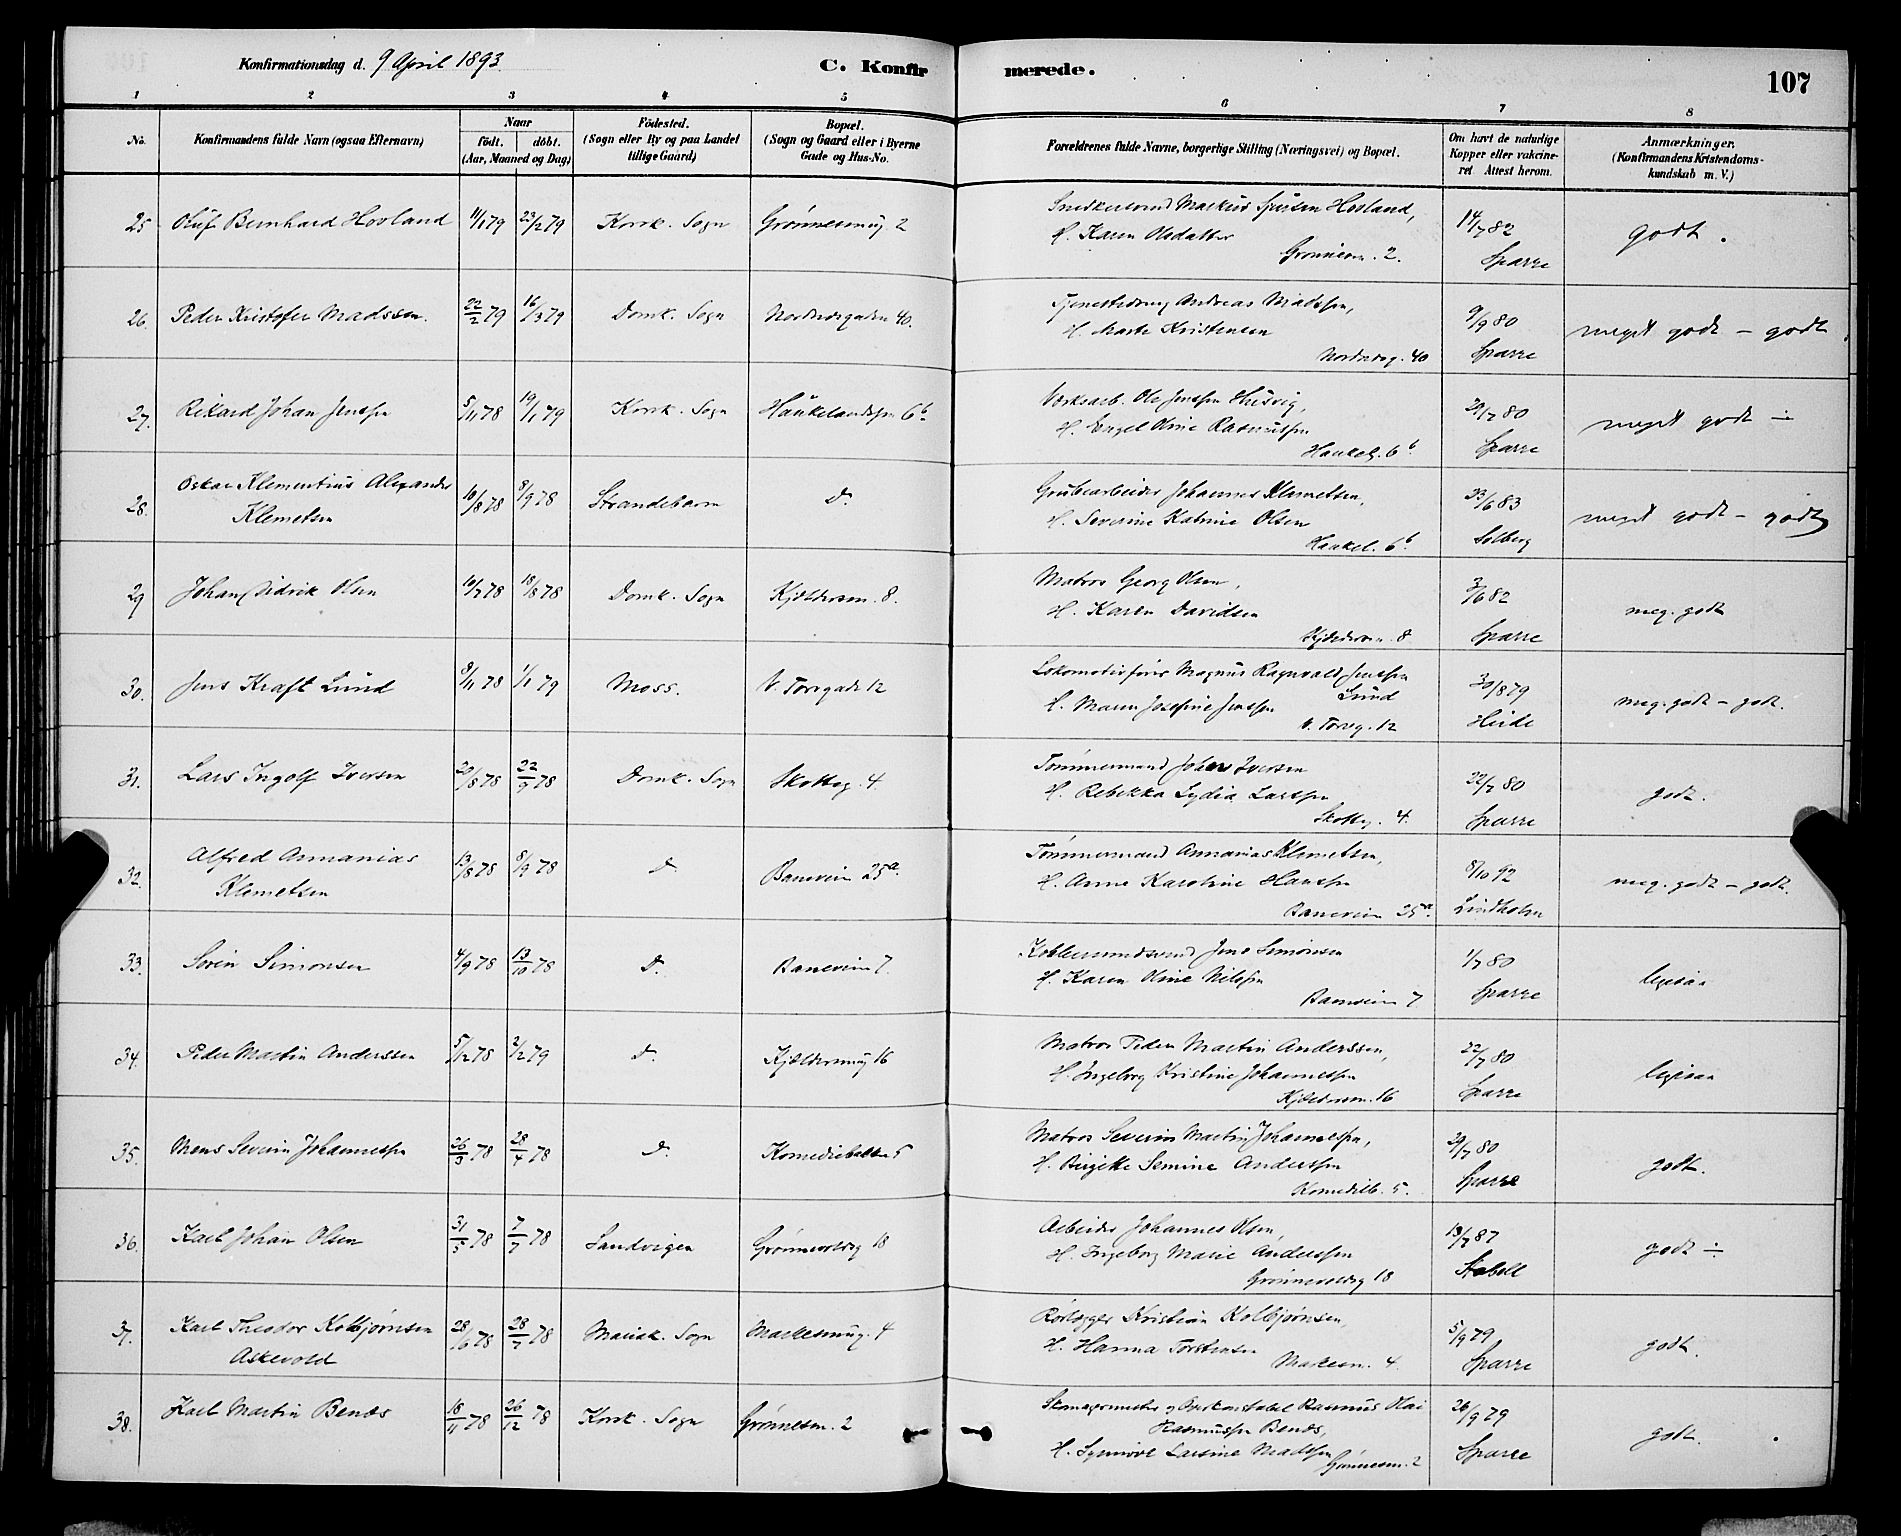 Konfirmationsdag d. 9 April 1893. C. Konfir merede. 107
1 2 3 4 5 6 7 8
No. Konfirmandens fulde Navn (ogsaa Efternavn) Naar født. døbt. (Aar, Maaned og Dag) Fødested. (Sogn eller By og paa Landet tillige Gaard) Bopæl. (Sogn og Gaard eller i Byerne Gade og Hus-No. Forældrenes fulde Navne, borgerlige Stilling (Næringsvei) og Bopæl. Om havt de naturlige Kopper eller vakcineret Attest herom. Anmærkninger. (Konfirmandens Kristendomskundskab m. V.)
25 Oluf Bernhard Hovland 11/1 79 23/2 79 Korsk. Sogn Grønnesmug 2 Snedkersvend Markus Hovland,
H. Karen Olsdatter
Grønnesm. 2. 14/7 82 Sparre godt.
26. Peder Kristofer Madssen. 22/2 79 16/3 79 Domk. Sogn Nordnesgaden 40. Tjenestedreng Andreas Madssen,
H. Marte Kristensen
Nordnesg. 40 9/9 80 Sparre meget godt - godt
27. Rikard Johan Jenssen 5/11 78 19/1 79 Korsk. Sogn Haukelandsvn 6b Værksarb. Ole Jenssen Husvig,
H. Engel Oline Rasmussen
Haukel. 6b. 29/7 80 Sparre meget godt ÷
28. Oskar Klementius Alexander
Klemetsen 10/8 78 8/9 78 Strandebarm D. Grubearbeider Johannes Klemetsen,
H. Severine Katrine Olsen
Haukel. 6b. 23/6 83 Solberg meget godt - godt
29 Johan Didrik Olsen 10/7 78 18/8 78 Domk. Sogn Kjeldersm. 8. Matros Georg Olsen,
H. Karen Davidsen
Kjeldersm. 8 3/6 82 Sparre meg. godt
30. Jens Kraft Lund 9/11 78 1/1 79 Moss. V. Torvgade 12 Lokomotivfører Magnus Ragnvald Jenssen
Lund
H. Maren Josefine Jenssen
V. Torvg. 12 30/8 79 Heide meg. godt - godt.
31. Lars Ingolf Iversen 20/8 78 22/9 78 Domk. Sogn Skotteg. 4. Tømmermand Johan Iversen
H. Rebekka Lydia Larssen
Skotteg. 4. 22/7 80 Sparre godt.
32. Alfred Annanias
Klemetsen 13/8 78 8/9 78 D. Baneveien 25a. Tømmermand Annanias Klemetsen,
H. Anna Karoline Hanssen
Baneveien 25a. 8/10 92 Lindholm meg. godt - godt.
33. Søren Simonsen 4/9 78 13/10 78 D. Baneveien 7. Jens Simonsen
H. Karen Oline Nilssen
Baneveien 7 1/7 80 Sparre ligesaa
34. Peder Martin Anderssen 5/12 78 2/2 79 D. Kjeldersmug 16 Matros Peder Martin Anderssen,
H. Ingeborg Kristine Johannessen
Kjeldersm. 16 22/7 80 Sparre ligesaa
35. Mons Severin Johannessen 26/3 78 28/4 78 D. Komediebakken 5 Matros Severin Martin Johannessen,
H. Birgitte Semine Anderssen
Komedieb. 5. 29/7 80 Sparre godt.
36. Karl Johan Olsen 31/5 78 7/7 78 Sandvigen Grønnevoldsg 18 Arbeider Johannes Olsen,
H. Ingeborg Marie Anderssen
Grønnevoldsg 18 13/7 87 Stabell godt ÷
37. Karl Theodor Kolbjørnsen
Askevold 28/6 78 28/7 78 Mariak. Sogn Markesmug. 4 Rørlægger Kristian Kolbjørnsen,
H. Hanna Torstensen
Markesm. 4. 5/9 79 Sparre godt.
38. Karl Martin Bends 18/11 78 26/12 78 Korsk. Sogn Grønnesm. 2 Skomagermester og Overkonstabel Rasmus Olai
Rasmussen Bends,
H. Synnøve Larsine Madssen
Grønnesm. 2 26/9 79 Sparre godt.